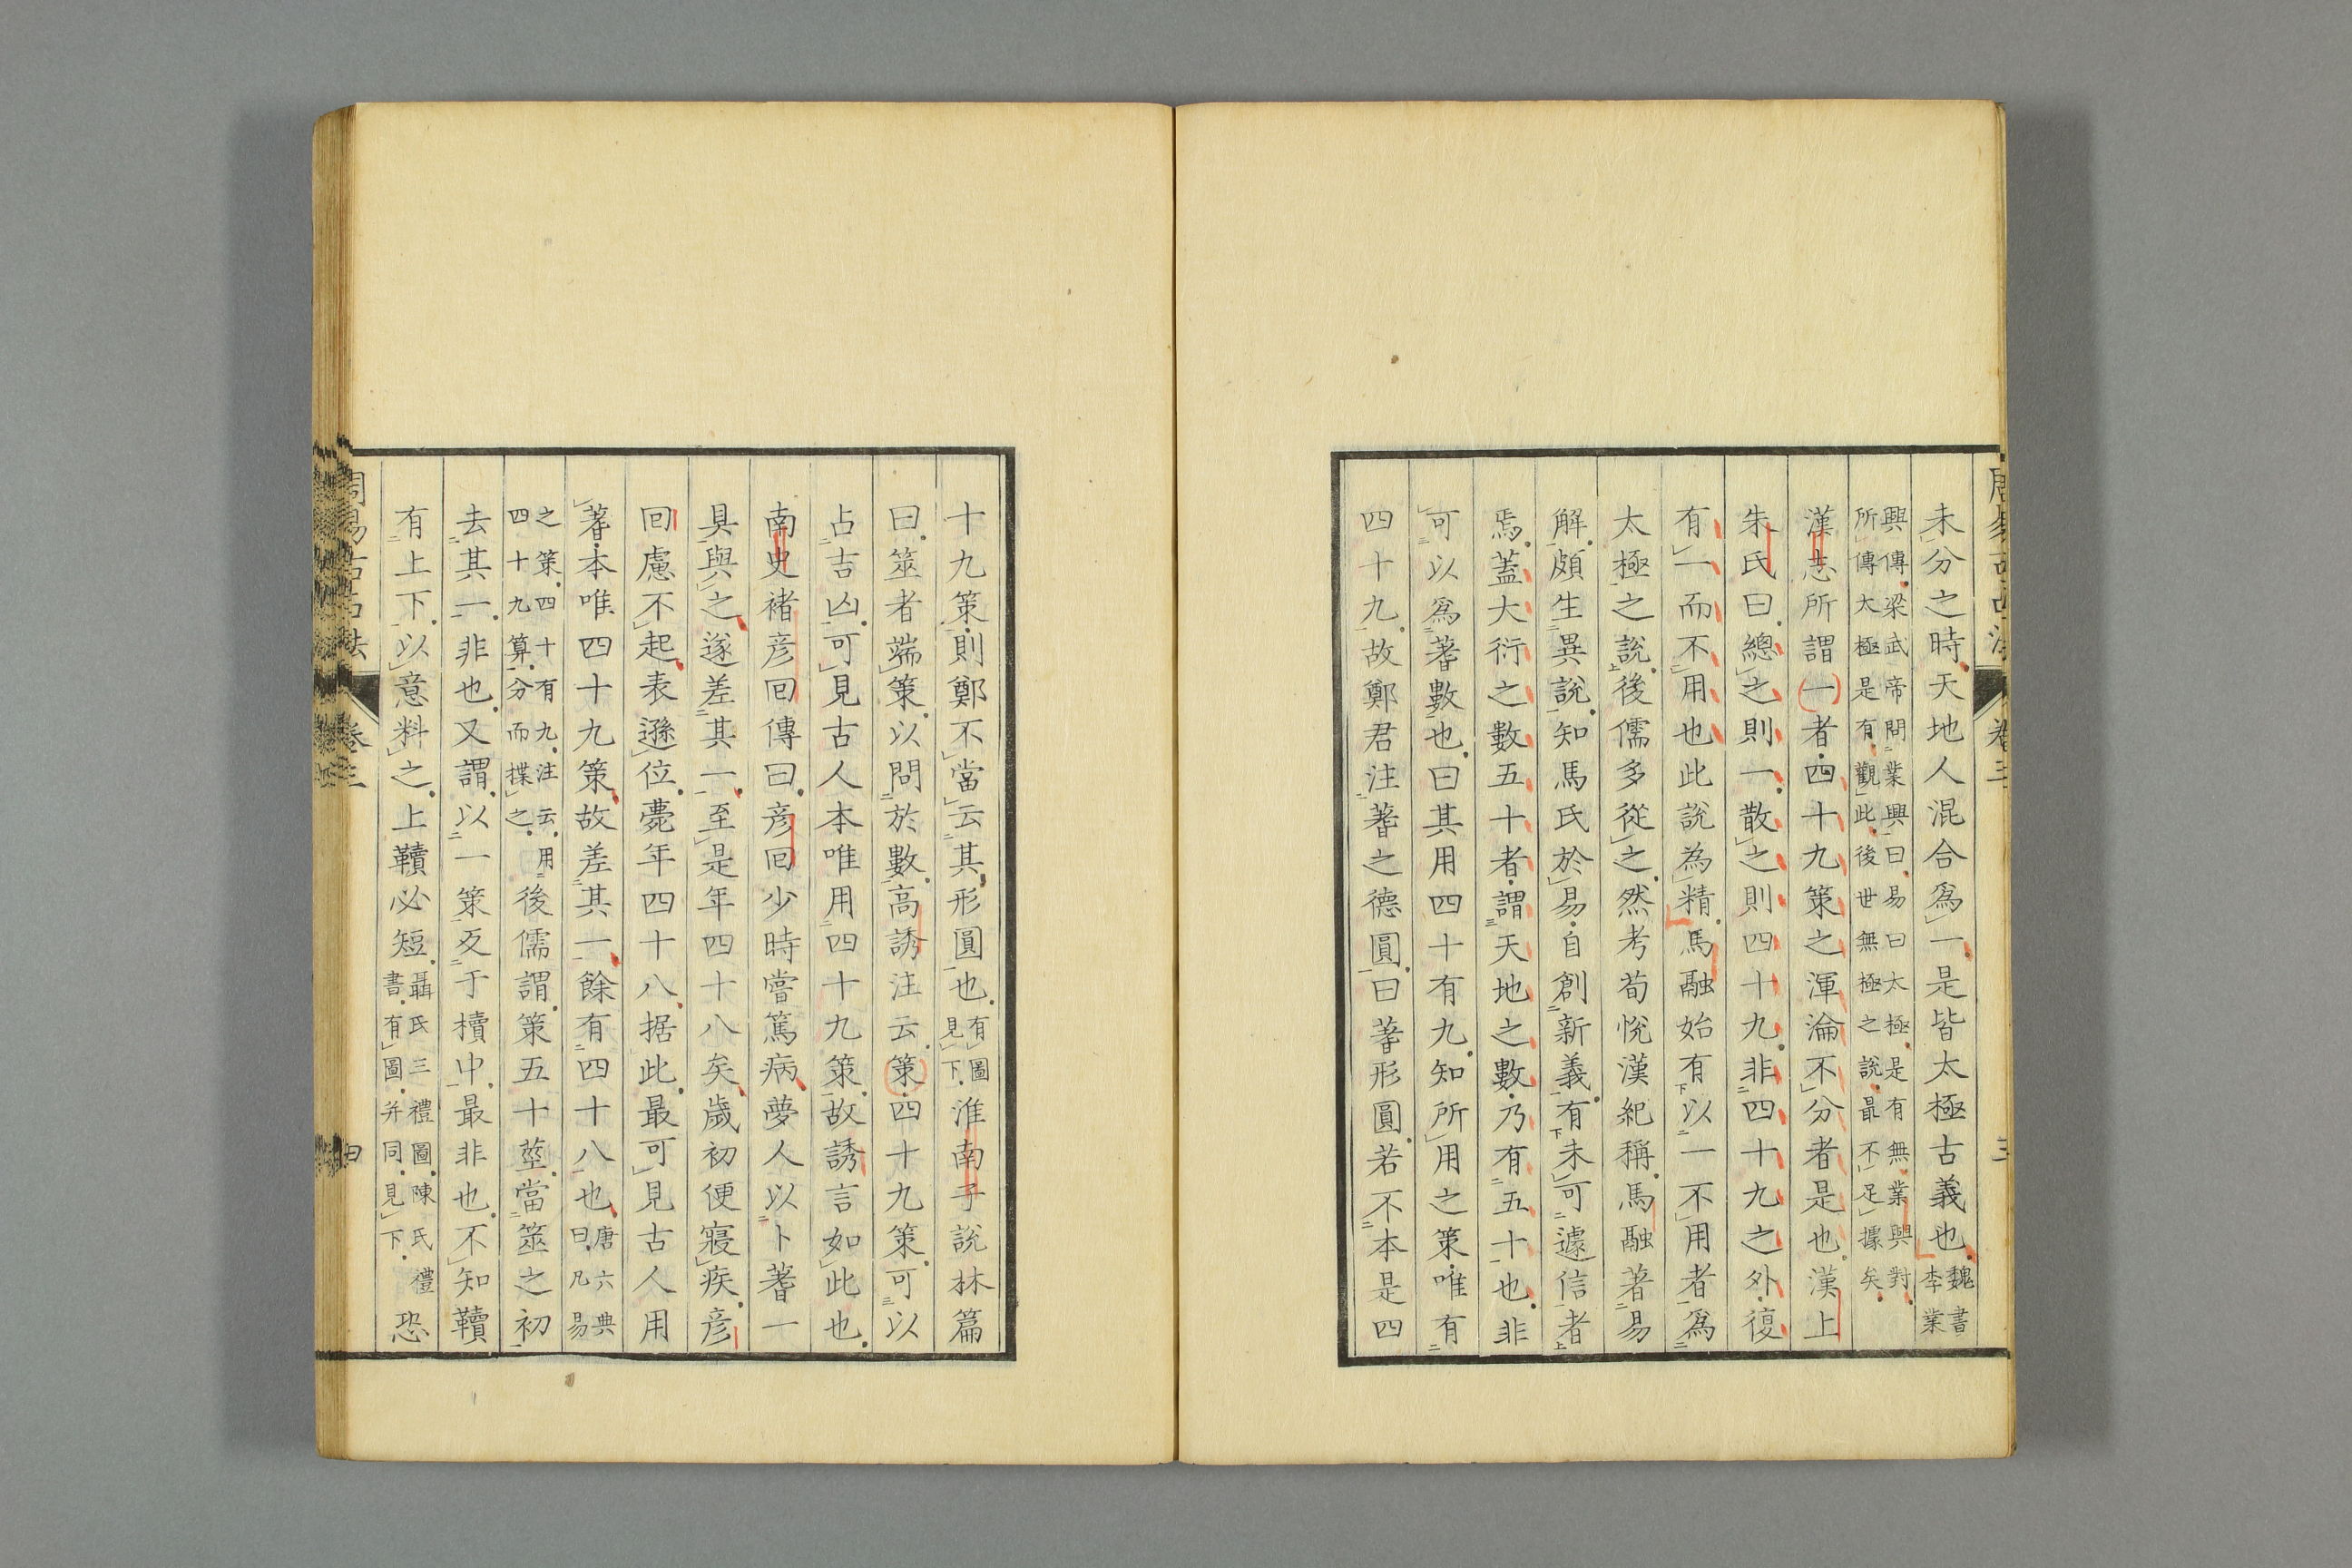 未分之時天地人混合爲一是皆太極古義也魏書李業
興傳梁武帝問業興曰易曰太極是有無業興對
所傳大極是有觀此後世無極之說最不足據矣
漢志所謂一者四十九策之渾淪不分者是也漢上
朱氏曰總之則一散之則四十九非四十九之外復
有一而不用也此說為精馬融始有以一不用者爲
太極之說後儒多從之然考荀悅漢紀稱馬融著易
解頗生異說知馬氏於易自創新義有未可遽信者
焉蓋大衍之數五十者謂天地之數乃有五十也非
可以爲蓍數也曰其用四十有九知所用之策唯有
四十九故鄭君注蓍之德圓曰蓍形圓若不本是四
十九策則鄭不當云其形圓也有圖見下淮南子說林篇
曰筮者端策以問於數高誘注云策四十九策可以
占吉凶可見古人本唯用四十九策故誘言如此也
南史褚彥回傳曰彥回少時嘗篤病夢人以卜蓍一
具與之遂差其一至是年四十八矣歲初便寢疾彥
回慮不起表遜位薨年四十八据此最可見古人用
蓍本唯四十九策故差其一餘有四十八也唐六典曰凡易
之策四十有九注云用
四十九算分而揲之後儒謂策五十莖當筮之初
去其一非也又謂以一策反于櫝中最非也不知韇
有上下以意料之上韇必短聶氏三禮圖陳氏禮書有圖并同見下恐
周易古占法
卷三
三
四